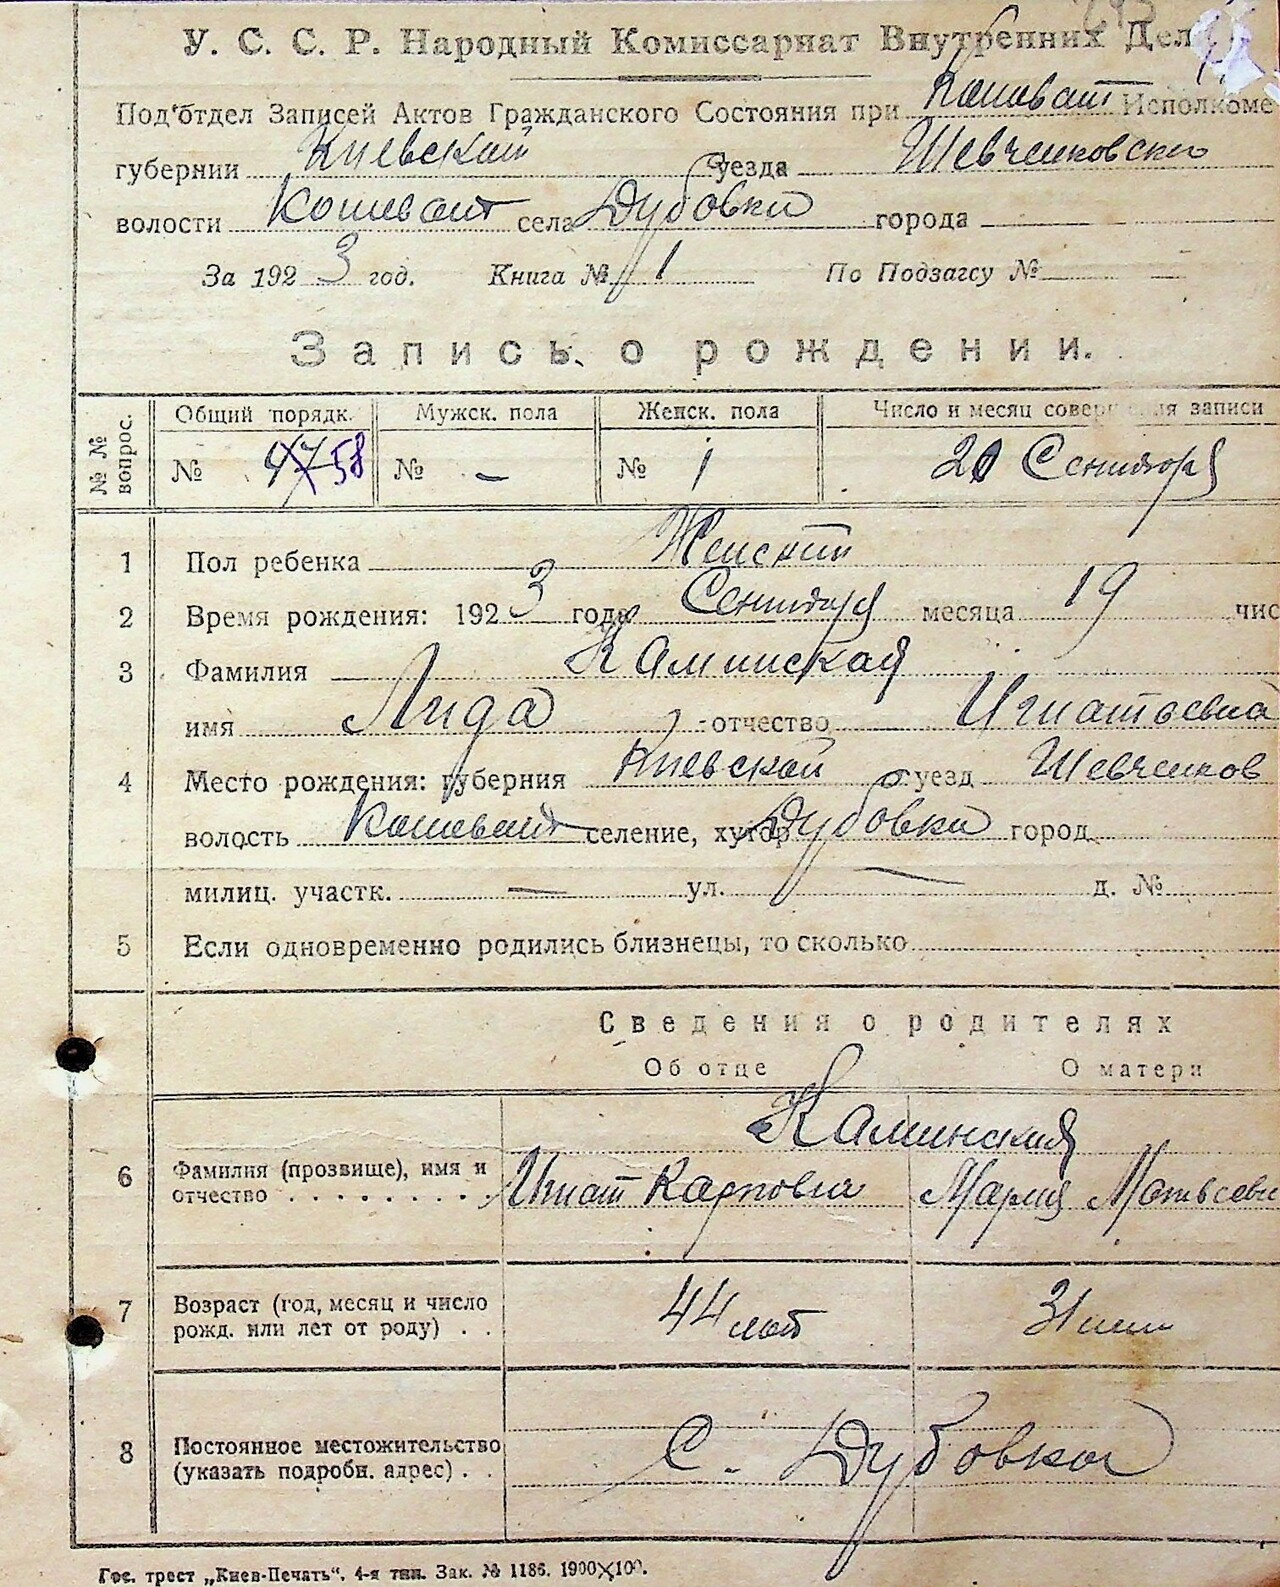 У. С. С. Р. Народный Комиссариат Внутренних Дел
Под'отдел Записей Актов Гражданского Состояния при Кошеват Исполкоме
губернии Киевской уезда Шевченковско
волости Кошеват села Дубовки города
За 1923 год. Книга № 1 По Подзагсу № —
Запись о рождении.
№№ вопрос. Общий порядк. Мужск. пола Женск. пола Число и месяц совершения записи
№ 47 58 № — № 1 20 Сентября
1 Пол ребенка Женский
2 Время рождения: 1923 года Сентября месяца 19 чис
3 Фамилия Каминская
имя Лида отчество Игнатоевна
4 Место рождения: губерния Киевской уезд Шевченков
волость Кошеват селение, хутор Дубовки город
милиц. участк. — ул. — д. №
5 Если одновременно родились близнецы, то сколько
Сведения о родителях
Об отце О матери
Каминския
6 Фамилия (прозвище), имя и Игнат Карпович Мария Матвеевн
отчество . . . . . . . . .
7 Возраст (год, месяц и число 44 лет 31
рожд. или лет от роду) . .
8 Постоянное местожительство С. Дубовка
(указать подробн. адрес) . .
Гос. трест „Киев-Печать“. 4-я тип. Зак. № 1186. 1900×100.